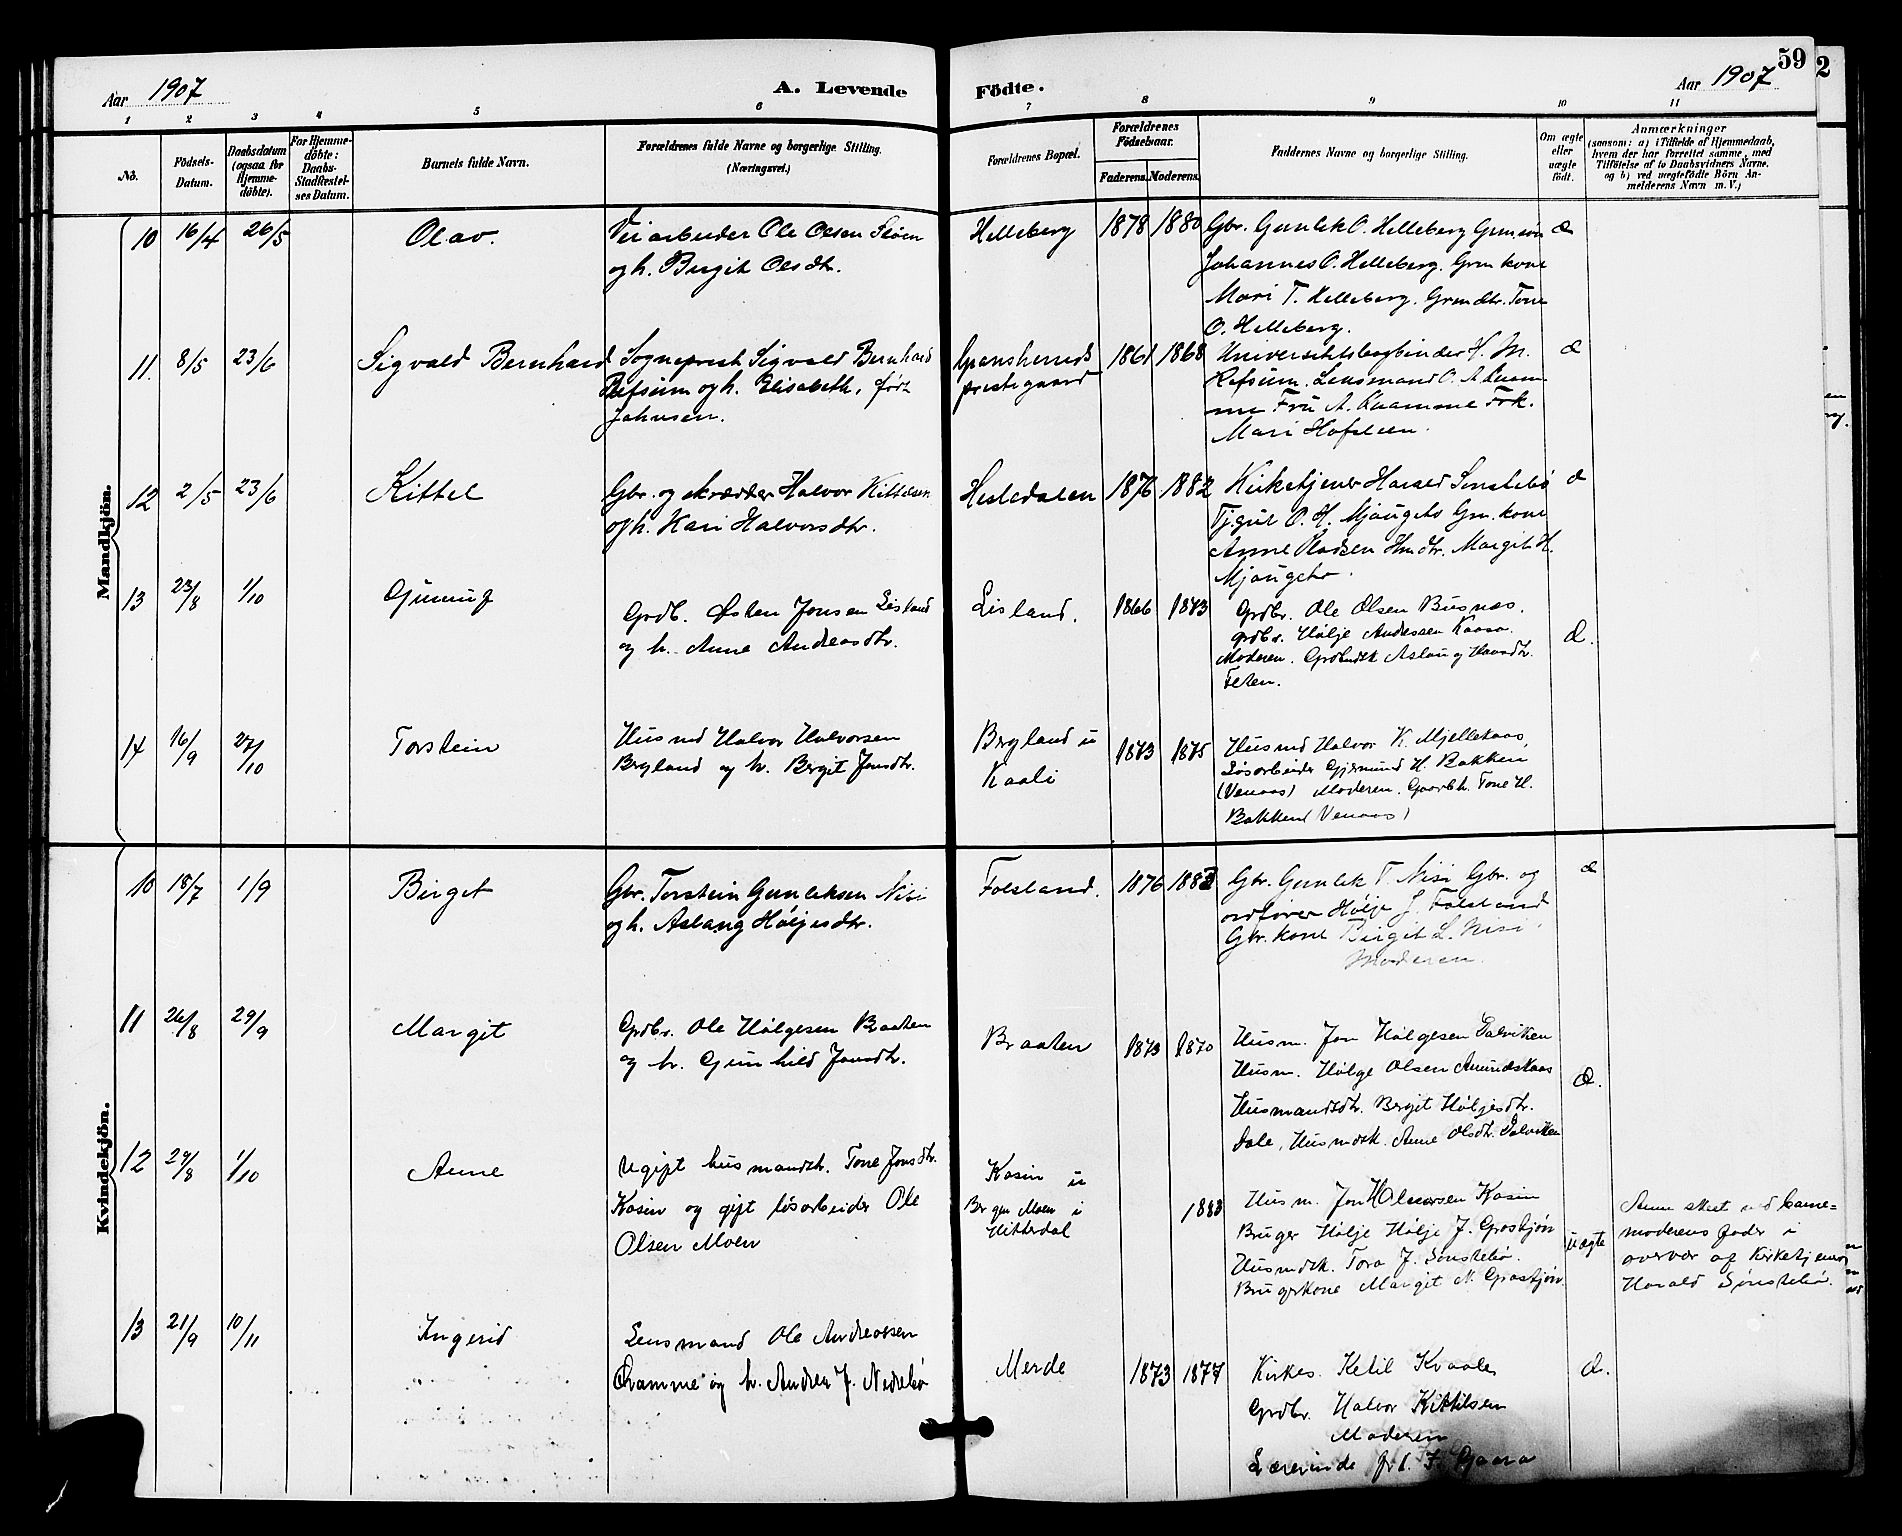 59
2
Aar 1907
A. Levende Födte.
Aar 1907
1 2 3 4 5 6 7 8 9 10 11
No.
Födsels-Datum.
Daabsdatum (ogsaa for Hjemmedöbte).
For Hjemmedöbte: Daabs-Stadfæstelses Datum.
Barnets fulde Navn.
Forældrenes fulde Navne og borgerlige Stilling.
(Næringsvei.)
Forældrenes Bopæl.
Forældrenes Födselsaar.
Faderens. Moderens.
Faddernes Navne og borgerlige Stilling.
Om ægte eller uægte födt.
Anmærkninger
(saasom: a) i Tilfælde af Hjemmedaab, hvem der har forrettet samme, med Tilföielse af to Daabsvidners Navne, og b) ved uægtefödte Börn Anmelderens Navn m. V.)
Mandkjön.
10 16/4 26/5 Olav.
Veiarbeider Ole Olsen
og h. Birgit Olsdtr.
Helleberg 1878 1880
Gbr. Gunlek O. Helleberg Grm.søn
Johannes O. Helleberg. Grm kone
Mari T. Helleberg. Grmdtr. Tone
O. Helleberg.
11. 8/5 23/6 Sigvald Bernhard
Sogneprest Sigvald Bernhard
Refsum og h. Elisabeth, født
Johnsen.
Gransherreds
prestegaard 1861 1868
Universitetsbogbinder H. M.
Refsum. Lensmand O. A. Kvam-
me Fru A. Kvamme Frk.
Mari Hofsleen.
æ
12 2/5 23/6 Kittel
Gbr. og skrædder Halvor Kittelsen
og h. Kari Halvorsdtr.
Hesledalen 1876 1882
Kirketjener Harald Sønstebø
Tjgut O. H. Mjaugeto Gm. kone
Anne Pladsen Hmdtr. Margit H.
Mjaugeto.
æ
13 23/8 1/10
Grdb. Østen Jonsen Lisland
og h. Anne Andreasdtr.
Lisland. 1866 1873
Grdbr. Ole Olsen Busnæs.
Grdbr. Hølje Anderssen Kaasa
Moderen. Aslaug
Teten.
æ.
14 16/9 27/10 Torstein
Husmd Halvor Halvorsen
Bergland og h. Bergit Jonsdtr.
Bergland u
Kaali 1873 1875
Husmd Halvor K. Mjellekaas,
Løsarbeider Gjermund H. Bakken
(Venaas) Moderen. Gaardb. Tone H.
Bakken (Venaas)
Kvindekjön.
10 18/7 1/9 Birgit
Gbr. Torstein Gunleksen Nisi
og h. Aslaug Høljesdtr.
Folsland. 1876 1882
Gbr. Gunlek T. Nisi Gbr. og
ordfører Hølje J. Folsland
Gbr. kone Birgit L. Nisi.
Moderen.
æ
11 26/8 29/9 Margit
Grdbr. Ole Hølgesen Braaten
og h. Gunhild Jonsdtr.
Braaten 1873 1870
Husm. Jon Hølgesen Dalviken
Husm. Hølge Olsen Amundskaas
Husmandsdtr. Bergit Høljesdtr.
Dale, Husmdsk. Anne Olsdtr. Dalviken
æ.
12 29/8 1/10 Anne
Ugift husmandsdtr. Tone Jonsdtr.
Kasin og gift løsarbeider Ole
Olsen Moen
Kasin u
Moen i
Hitterdal 1883
Husm. Jon Halvorsen Kasin
Bruger Hølje Hølje J. Grosbjøn
Husmdsk. Tora J. Sønstebø.
Brugerkone Margit N. Grosbjøn
uægte
Anm. sket ved barne-
moderens fader i
overvær af Kirketjener
Harald Sønstebø.
13 21/9 10/11 Ingerid
Lensmand Ole Andreassen
Qvamme og h. Andrea J. Nedrebø
Merde 1873 1877
Kirkes. Ketil Kvaale
Grdbr. Halvor Kittilsen
Moderen
Lærerinde frk. Gjaara
æ.